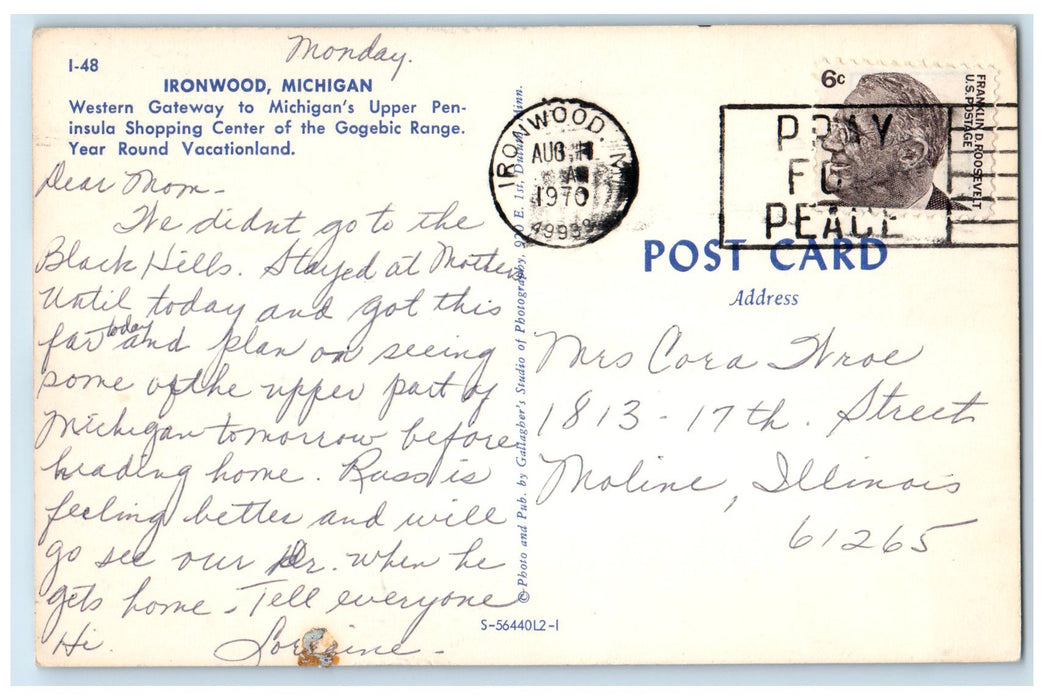 Monday.
I-48
IRONWOOD, MICHIGAN
Western Gateway to Michigan's Upper Pen-
insula Shopping Center of the Gogebic Range.
Year Round Vacationland.
Dear Mom -
We didnt go to the
Black Hills. Stayed at Mothers
Until today and got this
far today and plan on seeing
some of the upper part of
Michigan tomorrow before
heading home. Russ is
feeling better and will
go see our Dr. when he
gets home - Tell everyone
Hi. Lorraine -
© Photo and Pub. by Gallagher's Studio of Photography, 920 E. 1st, Duluth, Minn.
S-56440L2-1
IRONWOOD, M
AUG
1970
49938
PRAY
FOR
PEACE
6c
FRANKLIN D. ROOSEVELT
U.S. POSTAGE
POST CARD
Address
Mrs Cora Wroe
1813 - 17th. Street
Moline, Illinois
61265